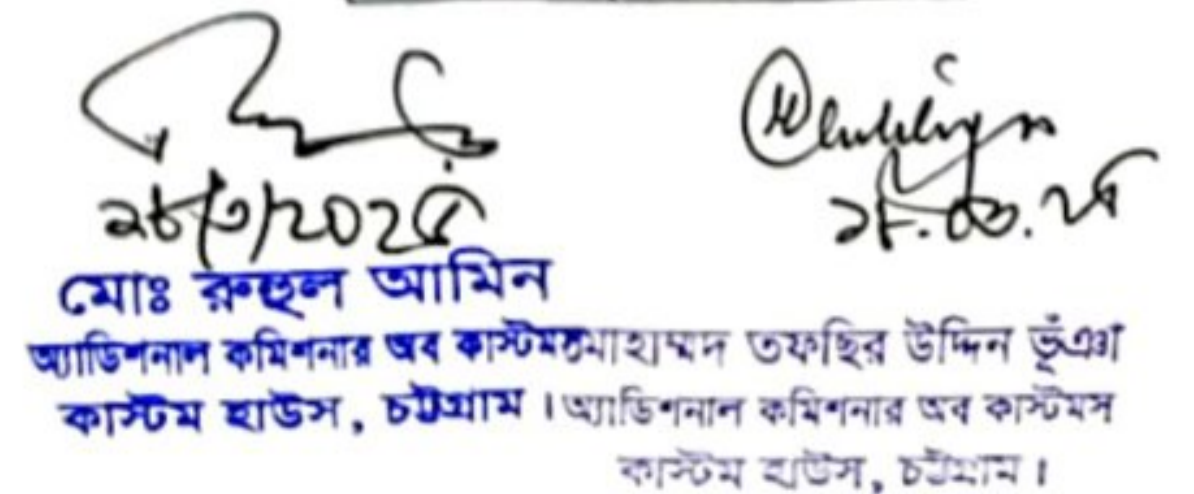 ২৮/৩/২০২৫
২৮.০৩.২৫
মোঃ রুহুল আমিন
অ্যাডিশনাল কমিশনার অব কাস্টমস
কাস্টম হাউস, চট্টগ্রাম।
মোহাম্মদ তফছির উদ্দিন ভূঁঞা
অ্যাডিশনাল কমিশনার অব কাস্টমস
কাস্টম হাউস, চট্টগ্রাম।